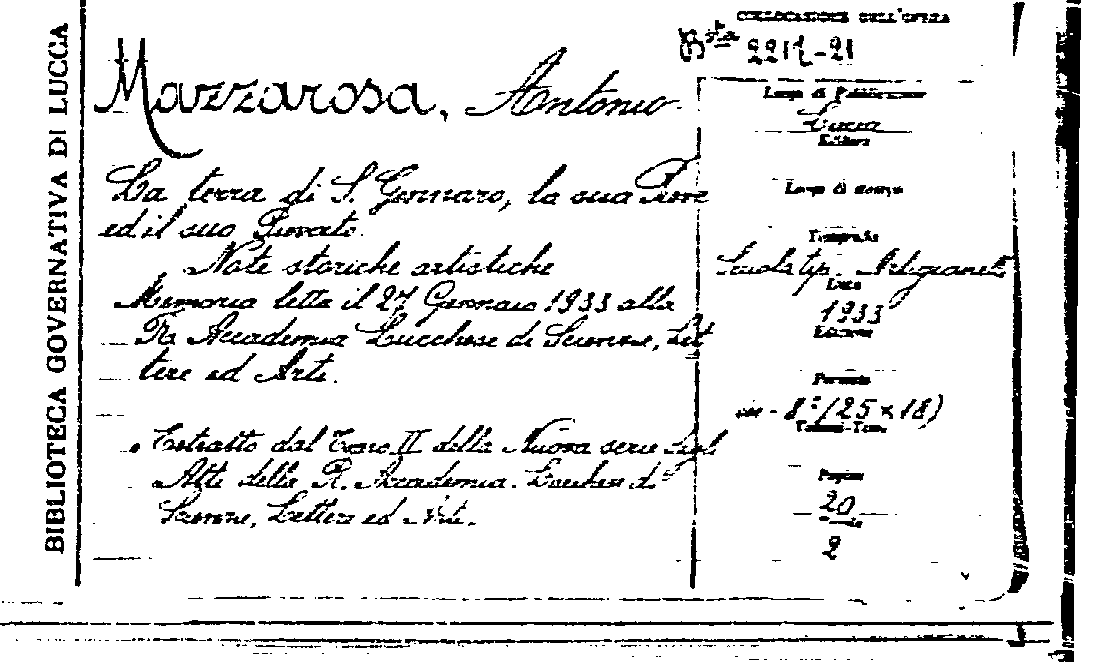 BIBLIOTECA GOVERNATIVA DI LUCCA
COLLOCAZIONE DELL'OPERA
Bta 2212-21
Mazzarosa, Antonio
La terra di S. Gennaro, la sua Pieve
ed il suo Pievato.
Note storiche artistiche
Memoria letta il 27 Gennaio 1933 alla
R. Accademia Lucchese di Scienze, Let
tere ed Arti.
Estratto dal Tomo II della Nuova serie degli
Atti della R. Accademia Lucchese di
Scienze, Lettere ed Arti.
Luogo di Pubblicazione
Lucca
Editore
Luogo di stampa
Tipografia
Scuola tip. Artigianelli
Data
1933
Edizione
Formato
in-8° (25 x 18)
Pagine
20
2